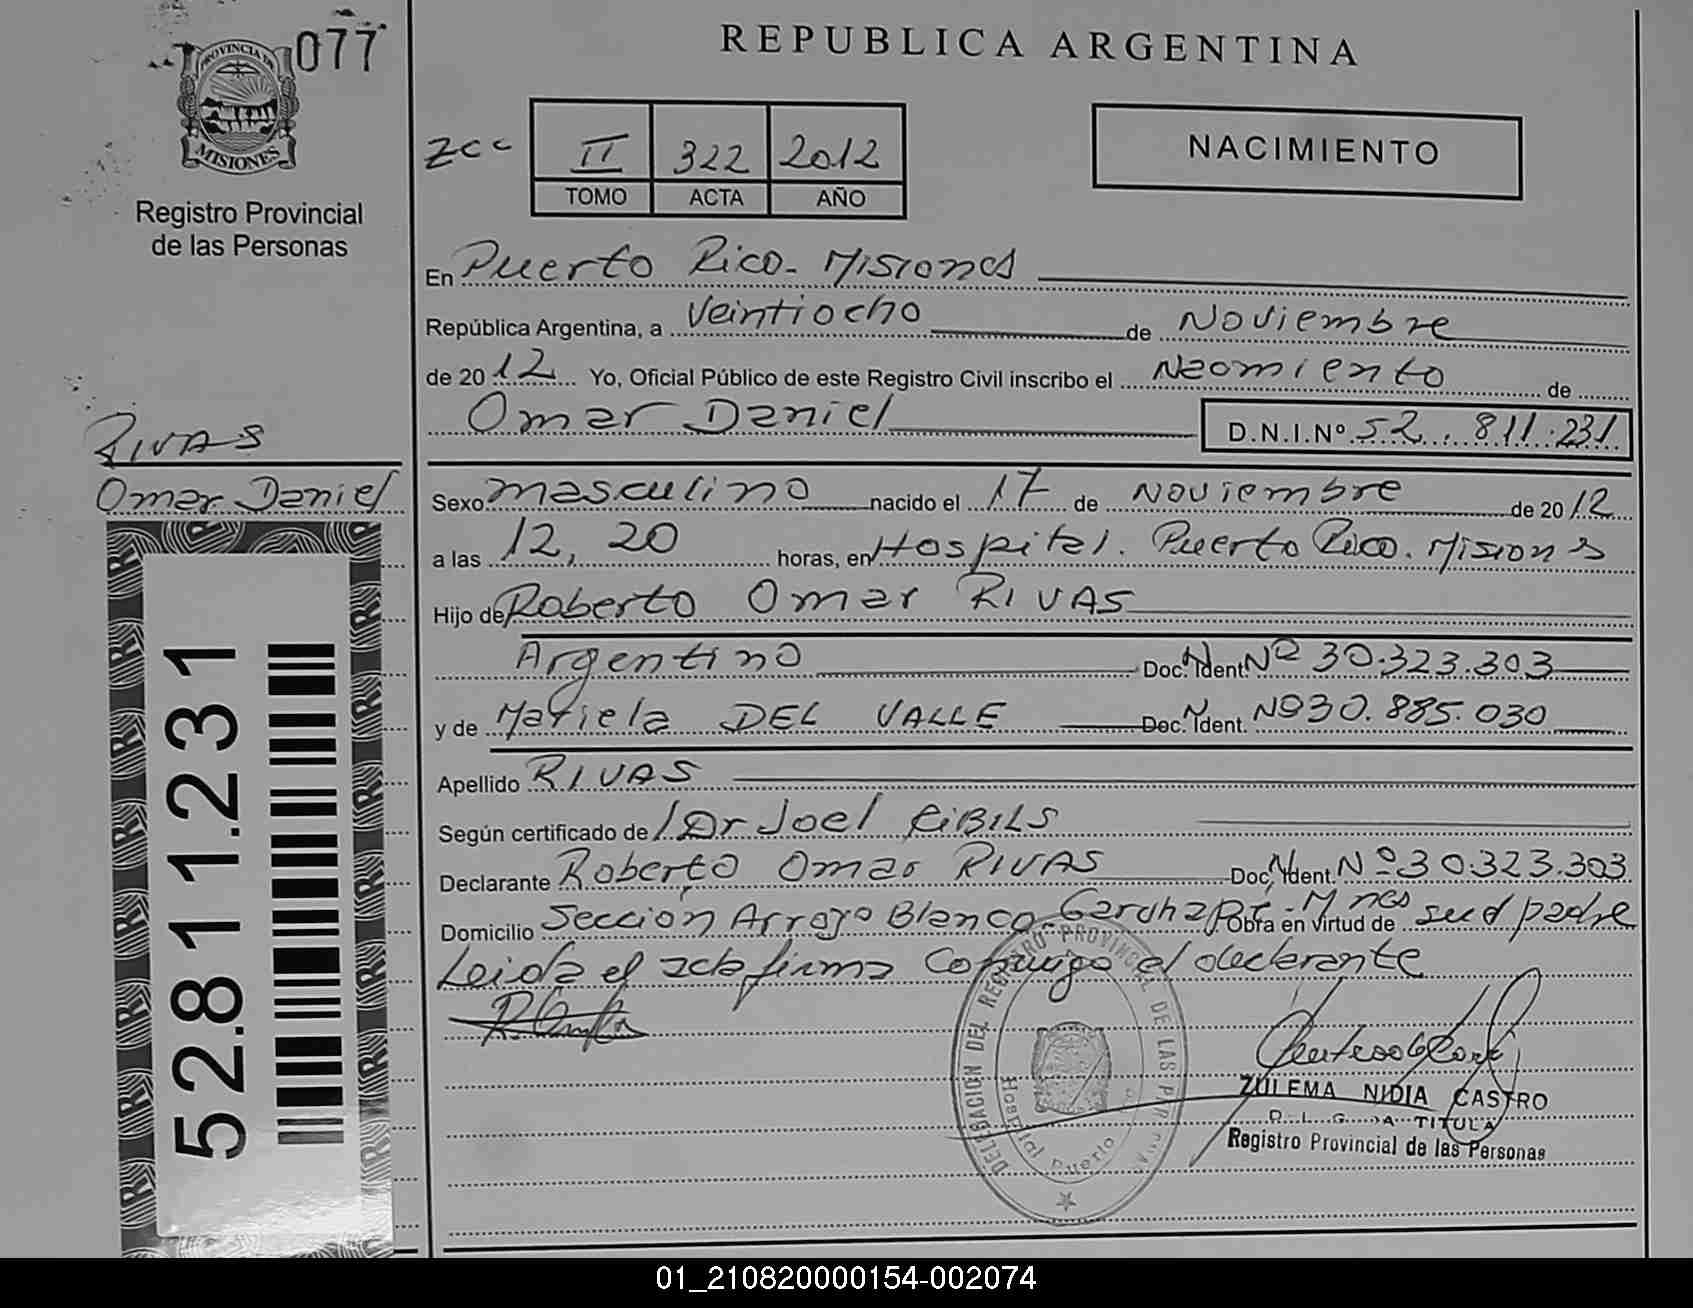 077
PROVINCIA DE
MISIONES
Registro Provincial
de las Personas
REPUBLICA ARGENTINA
II 322 2012
TOMO ACTA AÑO
NACIMIENTO
En Puerto Rico - Misiones
República Argentina, a Veintiocho de Noviembre
de 2012 Yo, Oficial Público de este Registro Civil inscribo el Nacimiento de
Omar Daniel D.N.I.Nº 52.811.231
RIVAS
Omar Daniel
Sexo masculino nacido el 17 de Noviembre de 2012
a las 12,20 horas, en Hospital. Puerto Rico. Misiones
Hijo de Roberto Omar RIVAS
Argentino Doc. Ident. Nº 30.323.303
y de Mariela DEL VALLE Doc. Ident. Nº 30.885.030
Apellido RIVAS
Según certificado de Dr Joel RIBILS
Declarante Roberto Omar RIVAS Doc. Ident. Nº 30.323.303
Domicilio Sección Arroyo Blanco Obra en virtud de su padre
Leida el acta firma conmigo el declarante
52.811.231
DELEGACION DEL REGISTRO PROVINCIAL DE LAS
Hospital Puerto
ZULEMA NIDIA CASTRO
TITULA
Registro Provincial de las Personas
01_210820000154-002074